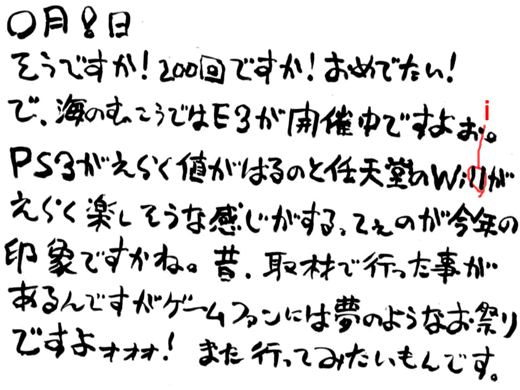 〇月8日
そうですか！200回ですか！おめでたい！
で、海のむこうではE3が開催中ですよぉ。
i
PS3がえらく値がはるのと任天堂のWillが
えらく楽しそうな感じがする、てぇのが今年の
印象ですかね。昔、取材で行った事が
あるんですがゲームファンには夢のようなお祭り
ですよォォォ！また行ってみたいもんです。